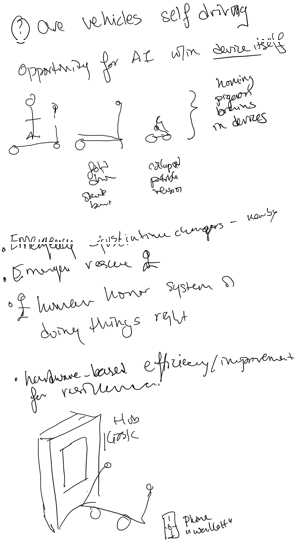 ? are vehicles self driving
Opportunity for AI w/in device itself
homing
pigeon
brains
in devices
fold
down
collapsed
portable
version
• Emergency changers - nearby
• Emergen rescue
• human honor system of
doing things right
• hardware-based efficiency/improvement
for resilience
Hub
Kiosk
phone
"wallet"